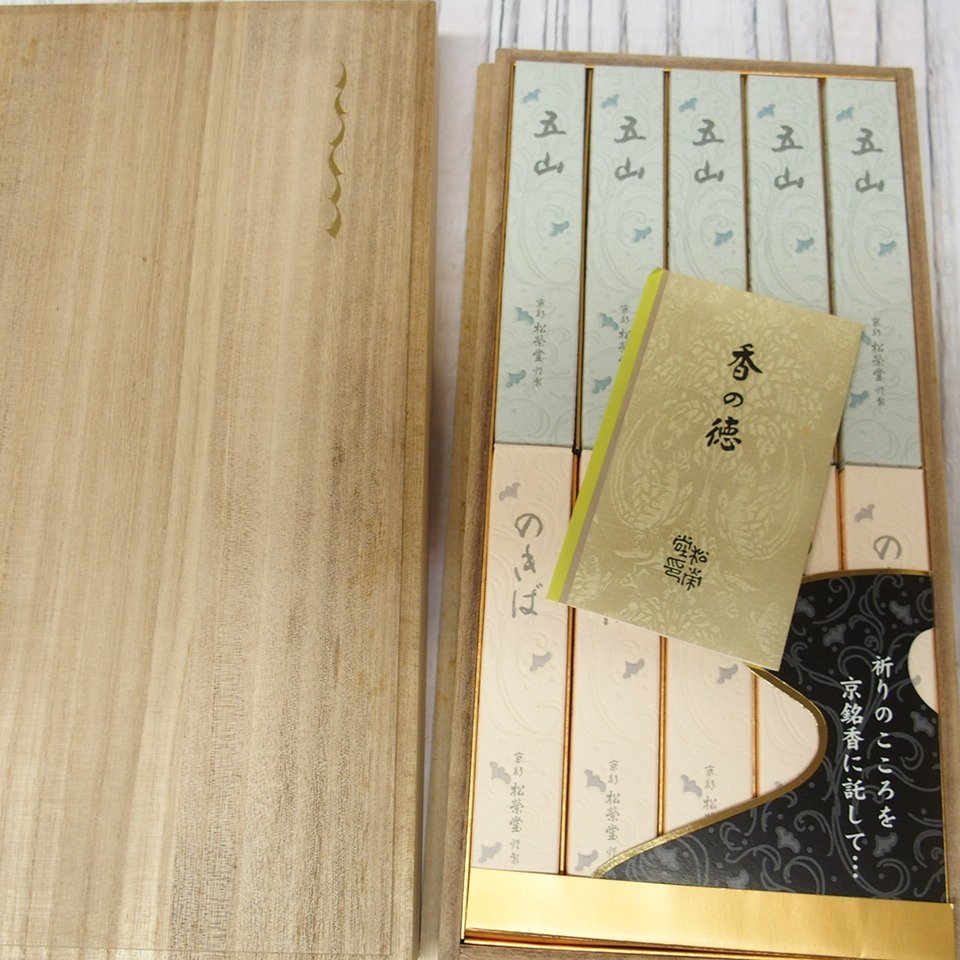 五山
五山
五山
五山
五山
京都 松榮堂 謹製
京都 松榮堂 謹製
京都 松榮堂 謹製
香の徳
松栄堂印
のきば
の
京都 松榮堂 謹製
京都 松榮堂 謹製
京都 松
祈りのこころを
京銘香に託して…